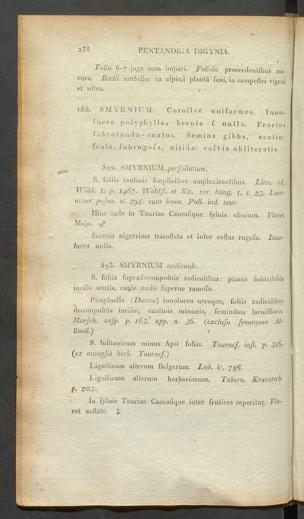 238 PENTANDRIA DIGYNIA.
Folia 6-7-juga cum impari. Foliola praecedentibus minora. Radii umbellae in alpinâ plantâ seni, in campestri vigeni
et ultra.
165. SMYRNIUM Corollae uniformes. Involucra polyphylla; brevia f. nulla. Fructus
subrotundo-ovatus. Semina gibba, acutiuscula, subrugosa, nitida: costis obliteratis.
592. SMYRNIUM perfoliatum.
S. foliis caulinis simplicibus amplexicaulibus. Linn. sl.
Willd. 1. p. 1467. Waldst. et Kit. rar. hung. 1. t. 23. Lumnitzer poson. n. 295. cum icone. Pall. ind. taur.
Hinc inde in Tauriae Caucasique sylvis obvium. Floret
Majo. ♂
Semina nigerrima tricostata et inter costas rugosa. Involucra nulla.
593. SMYRNIUM nudicaule.
S. foliis supradecompositis radicalibus: pinnis subtrilobis
inciso acutis, caule nudo superne ramoso.
Pimpinella (Dauca) involucro utroque, foliis radicalibus
decompositis incisis; caulinis minimis, seminibus laevissimis
Marsch. casp. p. 163. app. n. 36. (excluso synonymo Allionii.)
S. lusitanicum minus Apii foliis. Tournef. inst. p. 316.
(ex autopsiâ herb. Tournef.)
Ligusticum alterum Belgarum. Lob. ic. 786.
Ligusticum alterum herbariorum. Tabern. Kraeuterb.
p. 205.
In sylvis Tauriae Caucasique inter frutices reperitur. Floret aestate. ♃